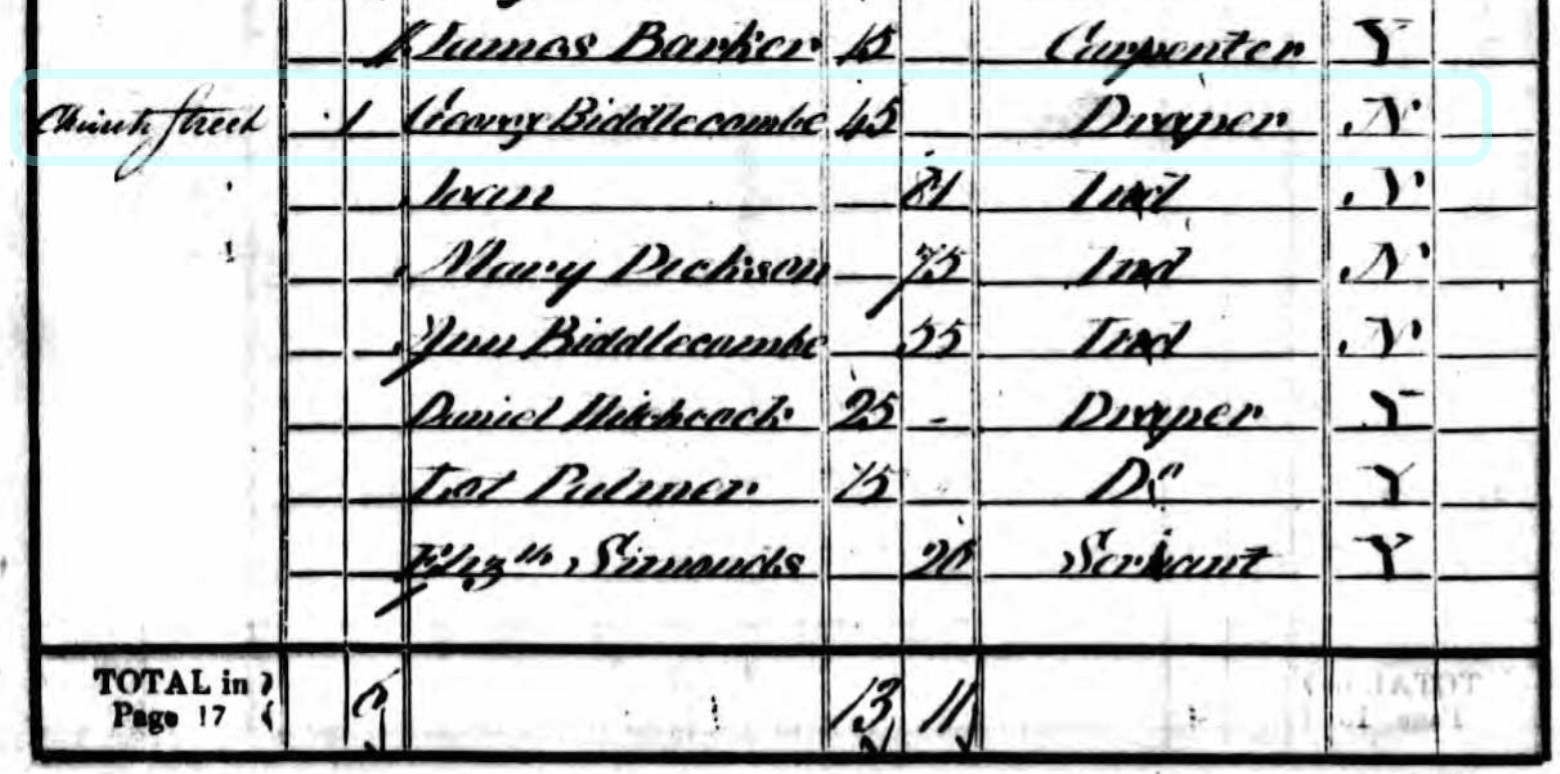 James Barker 15 Carpenter Y
Church Street 1 George Biddlecombe 45 Draper N
81 Ind N
Mary Dickson 75 Ind N
Ann Biddlecombe 55 Ind N
Daniel Hitchcock 25 - Draper Y
Palmer 15 Do Y
Elizth Simonds 20 Servant Y
TOTAL in
Page 17
13 11